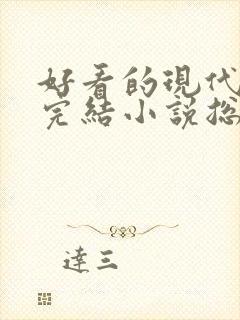 好看的現代
完結小說総
達三